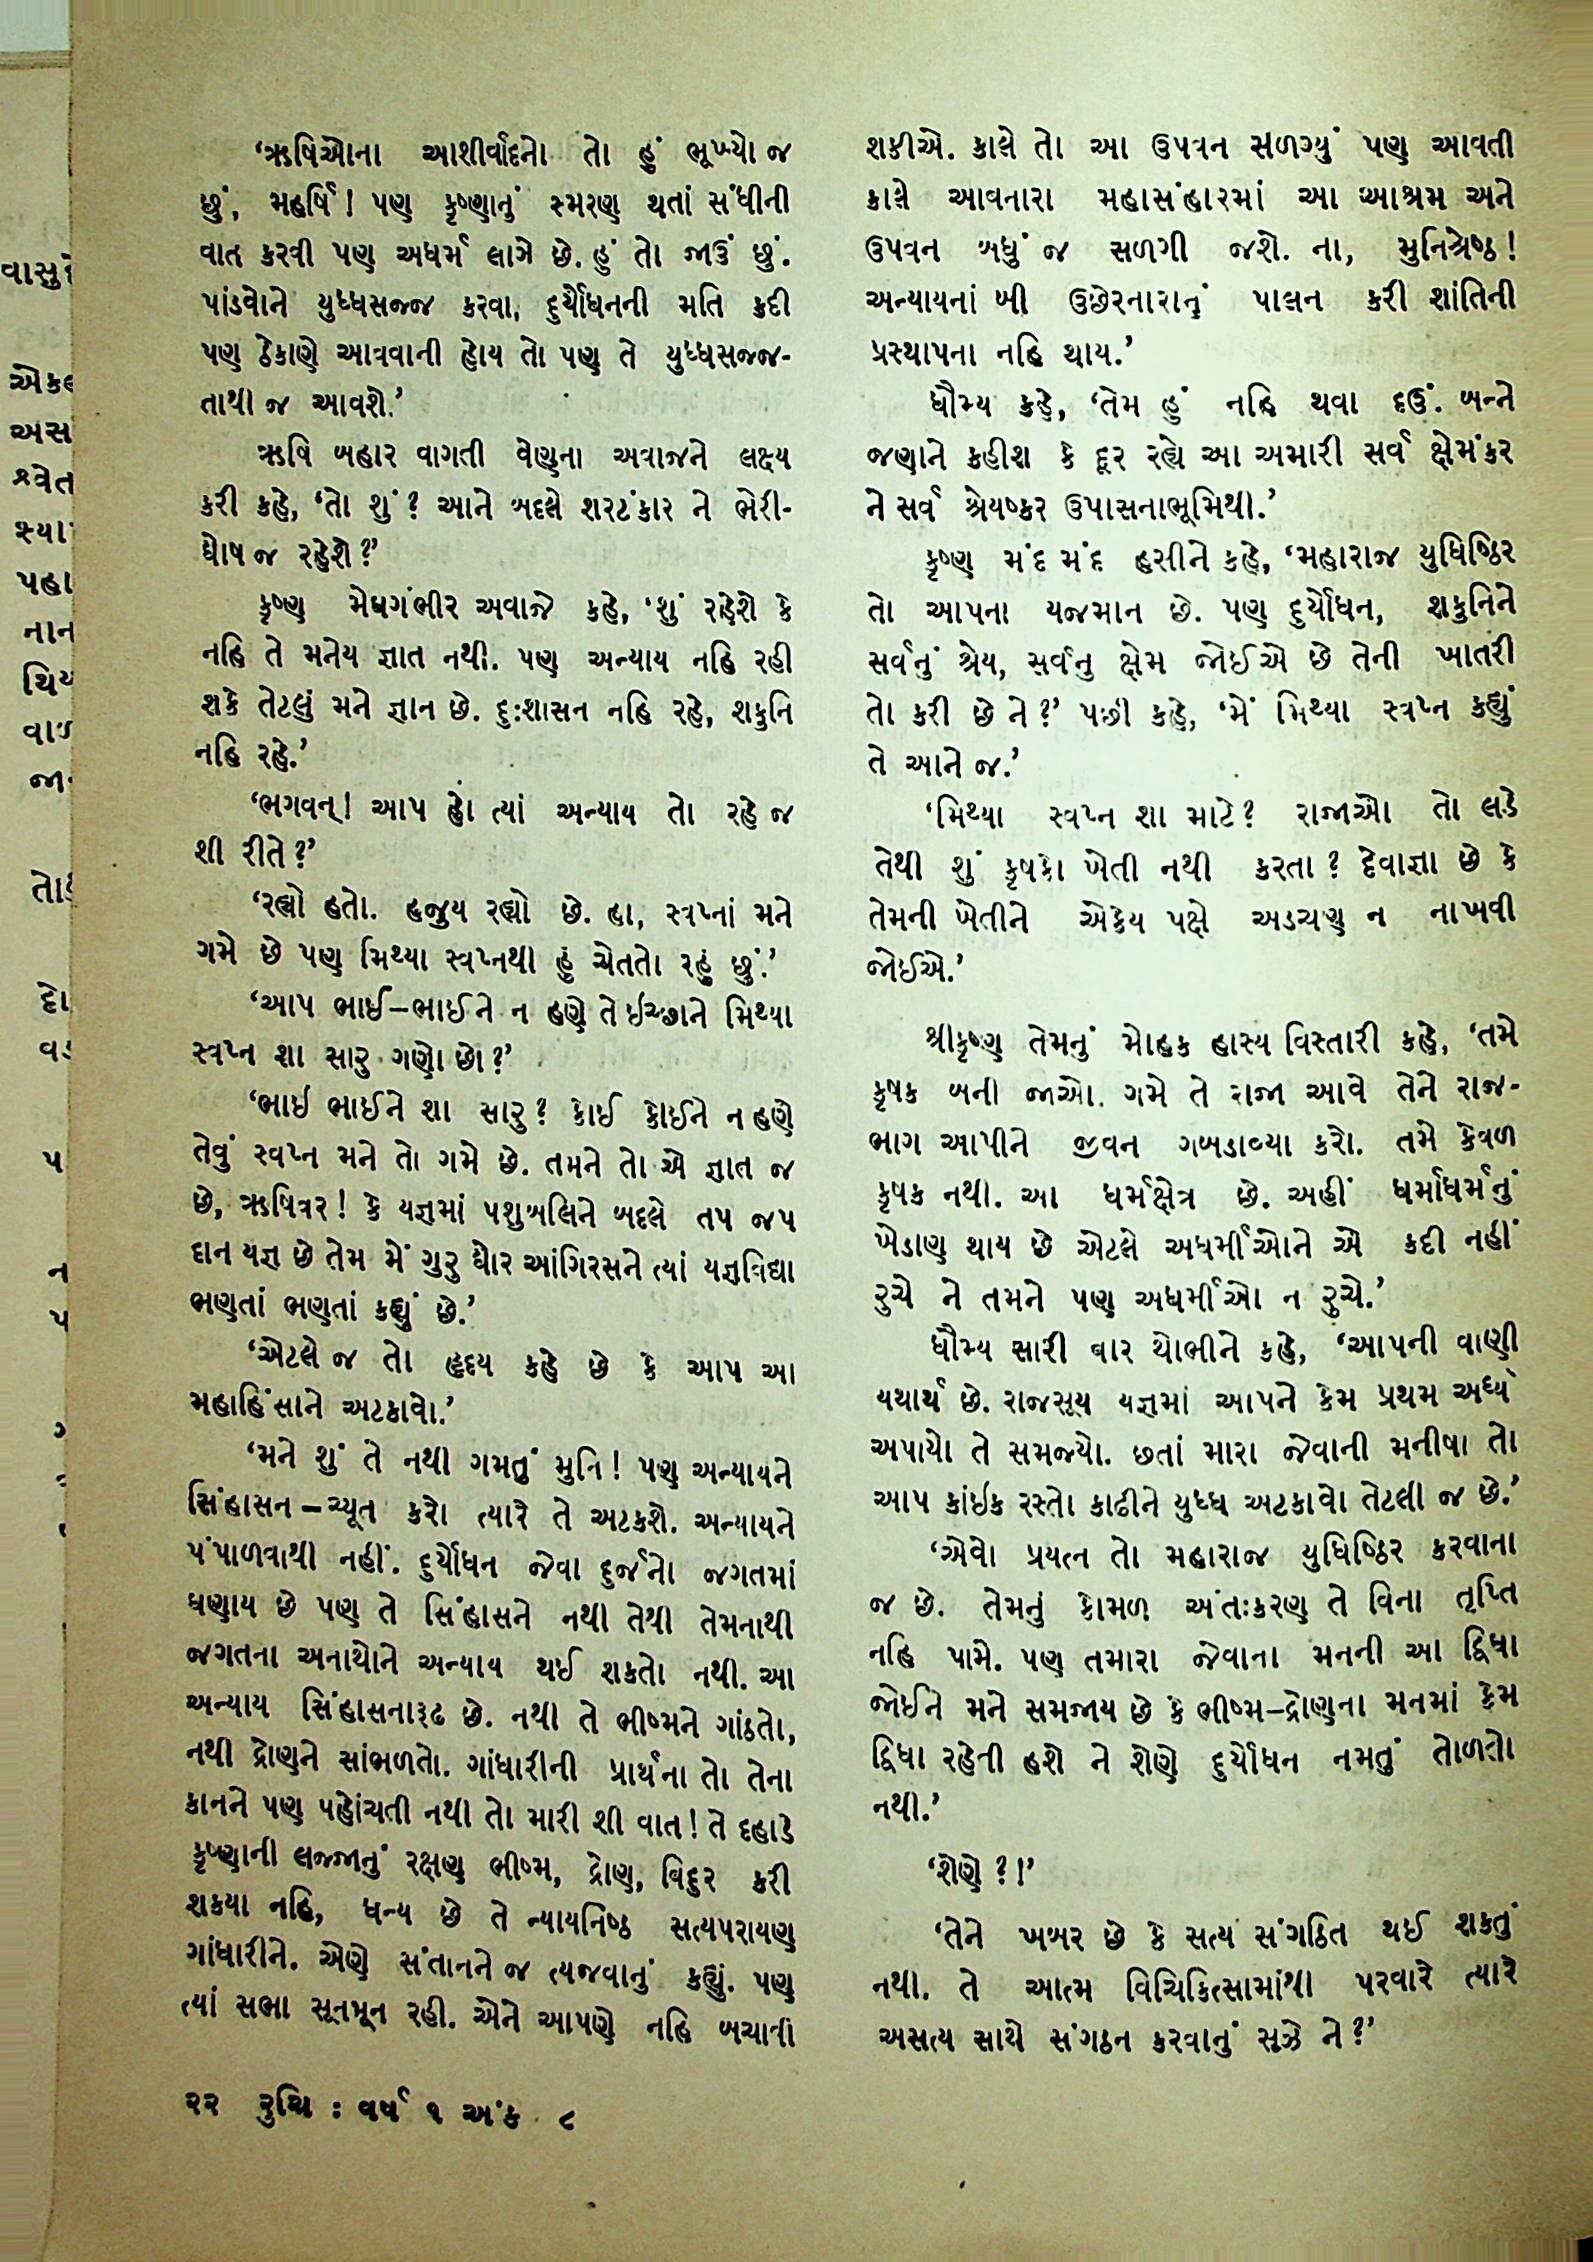 ‘ઋષિઓના આશીર્વાદનો તો હું ભૂખ્યો જ
છું, મહર્ષિ! પણ કૃષ્ણાનું સ્મરણ થતાં સંધીની
વાત કરવી પણ અધર્મ લાગે છે. હું તો જાઉં છું.
પાંડવોને યુધ્ધસજ્જ કરવા, દુર્યોધનની મતિ કદી
પણ ઠેકાણે આવવાની હોય તો પણ તે યુધ્ધસજ્જ-
તાથી જ આવશે.’
ઋષિ બહાર વાગતી વેણુના અવાજને લક્ષ્ય
કરી કહે, ‘તો શું? આને બદલે શરટંકાર ને ભેરી-
ઘોષ જ રહેશે?’
કૃષ્ણ મેઘગંભીર અવાજે કહે, ‘શું રહેશે કે
નહિ તે મનેય જ્ઞાત નથી. પણ અન્યાય નહિ રહી
શકે તેટલું મને જ્ઞાન છે. દુઃશાસન નહિ રહે, શકુનિ
નહિ રહે.’
‘ભગવન્! આપ હો ત્યાં અન્યાય તો રહે જ
શી રીતે?’
‘રહ્યો હતો. હજુય રહ્યો છે. હા, સ્વપ્નાં મને
ગમે છે પણ મિથ્યા સ્વપ્નથી હું ચેતતો રહું છું.’
‘આપ ભાઈ–ભાઈને ન હણે તે ઈચ્છાને મિથ્યા
સ્વપ્ન શા સારુ ગણો છો?’
‘ભાઇ ભાઈને શા સારુ? કોઈ કોઈને ન હણે
તેવું સ્વપ્ન મને તો ગમે છે. તમને તો એ જ્ઞાત જ
છે, ઋષિવર! કે યજ્ઞમાં પશુબલિને બદલે તપ જપ
દાન યજ્ઞ છે તેમ મેં ગુરુ ઘોર આંગિરસને ત્યાં યજ્ઞવિદ્યા
ભણતાં ભણતાં કહ્યું છે.’
‘એટલે જ તો હૃદય કહે છે કે આપ આ
મહાહિંસાને અટકાવો.’
‘મને શું તે નથી ગમતું મુનિ! પણ અન્યાયને
સિંહાસન–ચ્યૂત કરો ત્યારે તે અટકશે. અન્યાયને
પંપાળવાથી નહીં. દુર્યોધન જેવા દુર્જનો જગતમાં
ઘણાય છે પણ તે સિંહાસને નથી તેથી તેમનાથી
જગતના અનાથોને અન્યાય થઈ શકતો નથી. આ
અન્યાય સિંહાસનારૂઢ છે. નથી તે ભીષ્મને ગાંઠતો,
નથી દ્રોણને સાંભળતો. ગાંધારીની પ્રાર્થના તો તેના
કાનને પણ પહોંચતી નથી તો મારી શી વાત! તે દહાડે
કૃષ્ણાની લજ્જાનું રક્ષણ ભીષ્મ, દ્રોણ, વિદુર કરી
શકયા નહિ, ધન્ય છે તે ન્યાયનિષ્ઠ સત્યપરાયણ
ગાંધારીને. એણે સંતાનને જ ત્યજવાનું કહ્યું. પણ
ત્યાં સભા સૂનમૂન રહી. એને આપણે નહિ બચાવી
શકીએ. કાલે તો આ ઉપવન સળગ્યું પણ આવતી
કાલે આવનારા મહાસંહારમાં આ આશ્રમ અને
ઉપવન બધું જ સળગી જશે. ના, મુનિશ્રેષ્ઠ!
અન્યાયનાં બી ઉછેરનારાનું પાલન કરી શાંતિની
પ્રસ્થાપના નહિ થાય.’
ધૌમ્ય કહે, ‘તેમ હું નહિ થવા દઉં. બન્ને
જણાને કહીશ કે દૂર રહો આ અમારી સર્વ ક્ષેમંકર
ને સર્વ શ્રેયષ્કર ઉપાસનાભૂમિથી.’
કૃષ્ણ મંદ મંદ હસીને કહે, ‘મહારાજ યુધિષ્ઠિર
તો આપના યજમાન છે. પણ દુર્યોધન, શકુનિને
સર્વનું શ્રેય, સર્વનુ ક્ષેમ જોઈએ છે તેની ખાતરી
તો કરી છે ને?’ પછી કહે, ‘મેં મિથ્યા સ્વપ્ન કહ્યું
તે આને જ.’
‘મિથ્યા સ્વપ્ન શા માટે? રાજાઓ તો લડે
તેથી શું કૃષકો ખેતી નથી કરતા? દેવાજ્ઞા છે કે
તેમની ખેતીને એકેય પક્ષે અડચણ ન નાખવી
જોઈએ.’
શ્રીકૃષ્ણ તેમનું મોહક હાસ્ય વિસ્તારી કહે, ‘તમે
કૃષક બની જાઓ. ગમે તે રાજા આવે તેને રાજ-
ભાગ આપીને જીવન ગબડાવ્યા કરો. તમે કેવળ
કૃષક નથી. આ ધર્મક્ષેત્ર છે. અહીં ધર્માધર્મનું
ખેડાણ થાય છે એટલે અધર્મીઓને એ કદી નહીં
રુચે ને તમને પણ અધર્મીઓ ન રુચે.’
ધૌમ્ય સારી વાર થોભીને કહે, ‘આપની વાણી
યથાર્થ છે. રાજસૂય યજ્ઞમાં આપને કેમ પ્રથમ અર્ધ્ય
અપાયો તે સમજ્યો. છતાં મારા જેવાની મનીષા તો
આપ કાંઇક રસ્તો કાઢીને યુધ્ધ અટકાવો તેટલી જ છે.’
‘એવો પ્રયત્ન તો મહારાજ યુધિષ્ઠિર કરવાના
જ છે. તેમનું કોમળ અંતઃકરણ તે વિના તૃપ્તિ
નહિ પામે. પણ તમારા જેવાના મનની આ દ્વિધા
જોઈને મને સમજાય છે કે ભીષ્મ–દ્રોણના મનમાં કેમ
દ્વિધા રહેતી હશે ને શેણે દુર્યોધન નમતું તોળતો
નથી.’
‘શેણે?!’
‘તેને ખબર છે કે સત્ય સંગઠિત થઈ શકતું
નથી. તે આત્મ વિચિકિત્સામાંથી પરવારે ત્યારે
અસત્ય સાથે સંગઠન કરવાનું સૂઝે ને?’
૨૨ રુચિ : વર્ષ ૧ અંક ૮